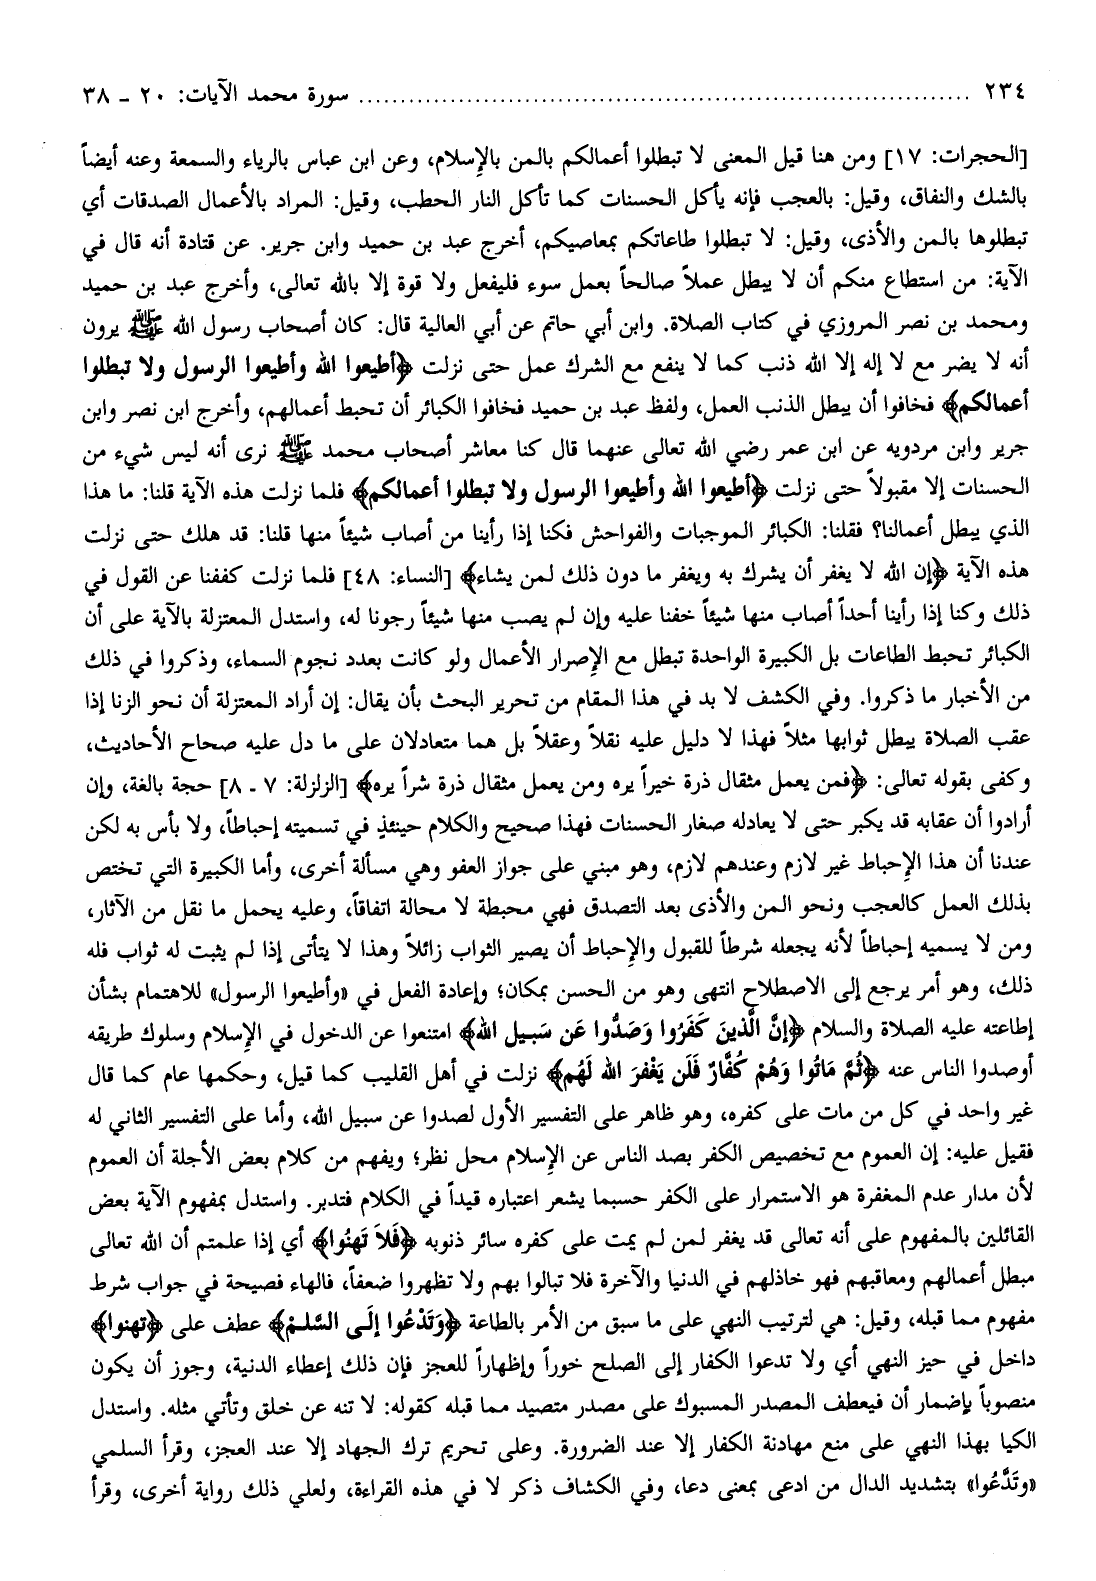 ٢٣٤ ........................ سورة محمد الآيات: ٢٠ - ٣٨
[الحجرات: ١٧] ومن هنا قيل المعنى لا تبطلوا أعمالكم بالمن بالإسلام، وعن ابن عباس بالرياء والسمعة وعنه أيضاً
بالشك والنفاق، وقيل: بالعجب فإنه يأكل الحسنات كما تأكل النار الحطب، وقيل: المراد بالأعمال الصدقات أي
تبطلوها بالمن والأذى، وقيل: لا تبطلوا طاعاتكم بمعاصيكم، أخرج عبد بن حميد وابن جرير. عن قتادة أنه قال في
الآية: من استطاع منكم أن لا يبطل عملاً صالحاً بعمل سوء فليفعل ولا قوة إلا بالله تعالى، وأخرج عبد بن حميد
ومحمد بن نصر المروزي في كتاب الصلاة. وابن أبي حاتم عن أبي العالية قال: كان أصحاب رسول الله ﷺ يرون
أنه لا يضر مع لا إله إلا الله ذنب كما لا ينفع مع الشرك عمل حتى نزلت ﴿أطيعوا الله وأطيعوا الرسول ولا تبطلوا
أعمالكم﴾ فخافوا أن يبطل الذنب العمل، ولفظ عبد بن حميد فخافوا الكبائر أن تحبط أعمالهم، وأخرج ابن نصر وابن
جرير وابن مردويه عن ابن عمر رضي الله تعالى عنهما قال كنا معاشر أصحاب محمد ﷺ نرى أنه ليس شيء من
الحسنات إلا مقبولاً حتى نزلت ﴿أطيعوا الله وأطيعوا الرسول ولا تبطلوا أعمالكم﴾ فلما نزلت هذه الآية قلنا: ما هذا
الذي يبطل أعمالنا؟ فقلنا: الكبائر الموجبات والفواحش فكنا إذا رأينا من أصاب شيئاً منها قلنا: قد هلك حتى نزلت
هذه الآية ﴿إن الله لا يغفر أن يشرك به ويغفر ما دون ذلك لمن يشاء﴾ [النساء: ٤٨] فلما نزلت كففنا عن القول في
ذلك وكنا إذا رأينا أحداً أصاب منها شيئاً خفنا عليه وإن لم يصب منها شيئاً رجونا له، واستدل المعتزلة بالآية على أن
الكبائر تحبط الطاعات بل الكبيرة الواحدة تبطل مع الإصرار الأعمال ولو كانت بعدد نجوم السماء، وذكروا في ذلك
من الأخبار ما ذكروا. وفي الكشف لا بد في هذا المقام من تحرير البحث بأن يقال: إن أراد المعتزلة أن نحو الزنا إذا
عقب الصلاة يبطل ثوابها مثلاً فهذا لا دليل عليه نقلاً وعقلاً بل هما متعادلان على ما دل عليه صحاح الأحاديث،
وكفى بقوله تعالى: ﴿فمن يعمل مثقال ذرة خيراً يره ومن يعمل مثقال ذرة شراً يره﴾ [الزلزلة: ٧ - ٨] حجة بالغة، وإن
أرادوا أن عقابه قد يكبر حتى لا يعادله صغار الحسنات فهذا صحيح والكلام حينئذٍ في تسميته إحباطاً، ولا بأس به لكن
عندنا أن هذا الإحباط غير لازم وعندهم لازم، وهو مبني على جواز العفو وهي مسألة أخرى، وأما الكبيرة التي تختص
بذلك العمل كالعجب ونحو المن والأذى بعد التصدق فهي محبطة لا محالة اتفاقاً، وعليه يحمل ما نقل من الآثار،
ومن لا يسميه إحباطاً لأنه يجعله شرطاً للقبول والإحباط أن يصير الثواب زائلاً وهذا لا يتأتى إذا لم يثبت له ثواب فله
ذلك، وهو أمر يرجع إلى الاصطلاح انتهى وهو من الحسن بمكان؛ وإعادة الفعل في «وأطيعوا الرسول» للاهتمام بشأن
إطاعته عليه الصلاة والسلام ﴿إنَّ الَّذينَ كَفَرُوا وَصَدُّوا عَن سَبيل الله﴾ امتنعوا عن الدخول في الإسلام وسلوك طريقه
أوصدوا الناس عنه ﴿ثُمَّ مَاتُوا وَهُمْ كُفَّارٌ فَلَن يَغْفرَ الله لَهُم﴾ نزلت في أهل القليب كما قيل، وحكمها عام كما قال
غير واحد في كل من مات على كفره، وهو ظاهر على التفسير الأول لصدوا عن سبيل الله، وأما على التفسير الثاني له
فقيل عليه: إن العموم مع تخصيص الكفر بصد الناس عن الإسلام محل نظر؛ ويفهم من كلام بعض الأجلة أن العموم
لأن مدار عدم المغفرة هو الاستمرار على الكفر حسبما يشعر اعتباره قيداً في الكلام فتدبر. واستدل بمفهوم الآية بعض
القائلين بالمفهوم على أنه تعالى قد يغفر لمن لم يمت على كفره سائر ذنوبه ﴿فَلاَ تَهنُوا﴾ أي إذا علمتم أن الله تعالى
مبطل أعمالهم ومعاقبهم فهو خاذلهم في الدنيا والآخرة فلا تبالوا بهم ولا تظهروا ضعفاً، فالهاء فصيحة في جواب شرط
مفهوم مما قبله، وقيل: هي لترتيب النهي على ما سبق من الأمر بالطاعة ﴿وَتَدْعُوا إلَى السَّلم﴾ عطف على ﴿تهنوا﴾
داخل في حيز النهي أي ولا تدعوا الكفار إلى الصلح خوراً وإظهاراً للعجز فإن ذلك إعطاء الدنية، وجوز أن يكون
منصوباً بإضمار أن فيعطف المصدر المسبوك على مصدر متصيد مما قبله كقوله: لا تنه عن خلق وتأتي مثله. واستدل
الكيا بهذا النهي على منع مهادنة الكفار إلا عند الضرورة. وعلى تحريم ترك الجهاد إلا عند العجز، وقرأ السلمي
«وتَدَّعُوا» بتشديد الدال من ادعى بمعنى دعا، وفي الكشاف ذكر لا في هذه القراءة، ولعلي ذلك رواية أخرى، وقرأ